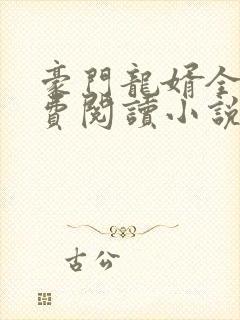 豪門龍婿全
費閱讀小說
古公